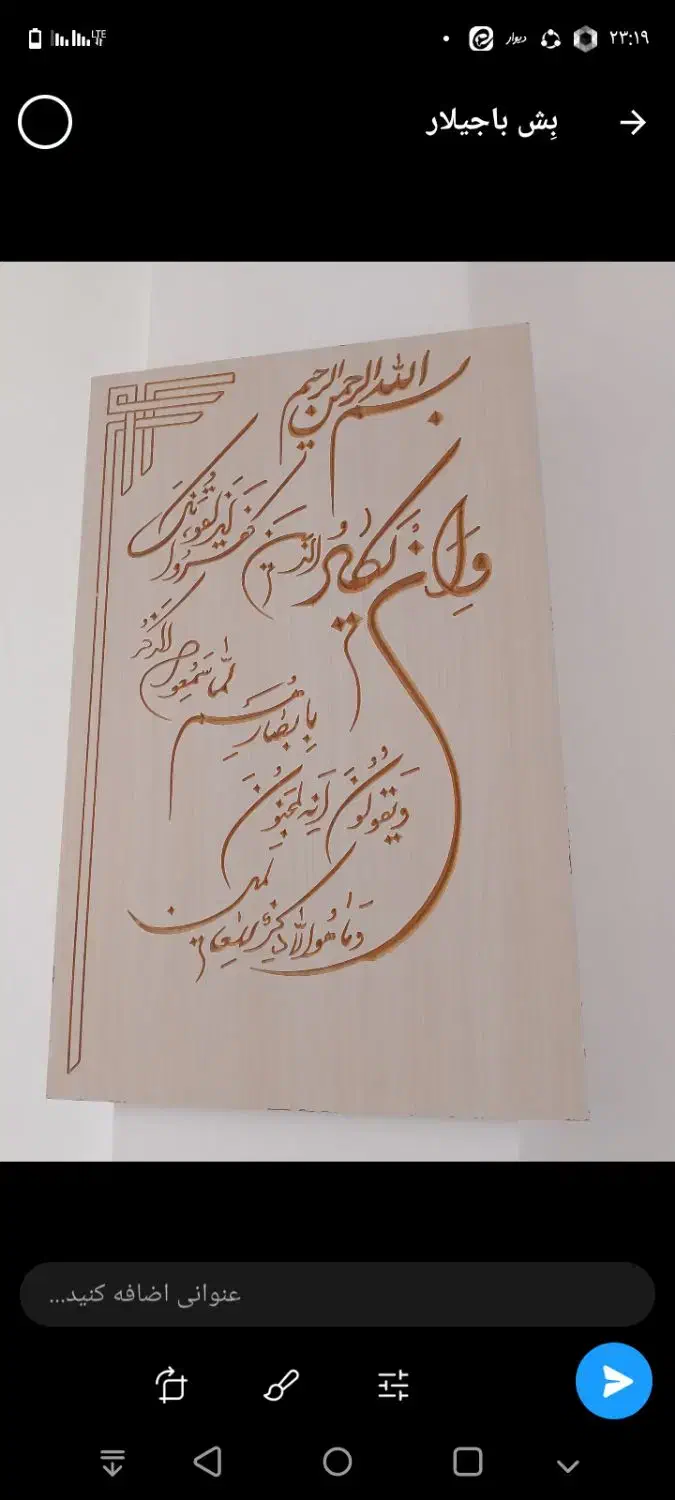 ۲۳:۱۹
دیوار
LTE
بِش باجیلار
بسم الله الرحمن الرحیم
وَاِن یَکادُ الَّذینَ کَفَرُوا لَیُزلِقُونَکَ
بِاَبصارِهِم لَمّا سَمِعُوا الذِّکرَ
وَیَقُولُونَ اِنَّهُ لَمَجنُونٌ
وَما هُوَ اِلّا ذِکرٌ لِلعالَمین
عنوانی اضافه کنید...